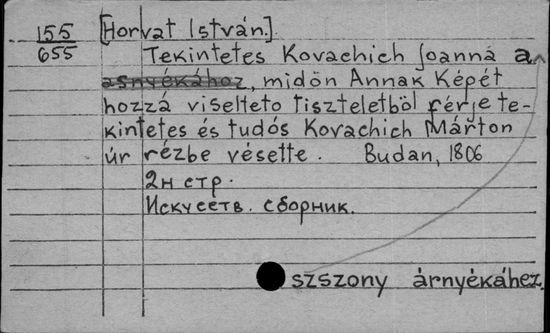 155
655
[Horvat István.]
Tekintetes Kovachich Joanná a
asnyékához, midön Annak Képét
hozzá viselteto tiszteletböl férje te-
kintetes és tudós Kovachich Márton
úr rézbe vésette. Budan, 1806
2н стр.
Искусств. сборник.
szszony árnyékához.